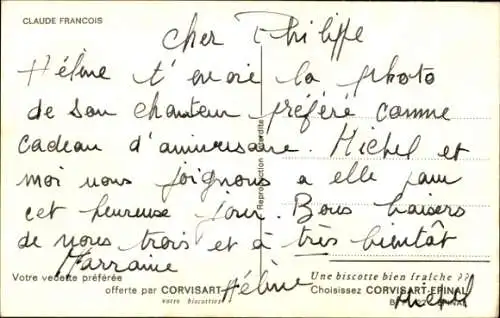 CLAUDE FRANCOIS
cher Philippe
Hélène t'envoie la photo
de son chanteur préféré comme
cadeau d'anniversaire. Michel et
moi nous joignons a elle pour
cet heureuse jour. Bons baisers
de nous trois et à très bientôt
Marraine
Hélène
Michel
Reproduction interdite
Votre vedette préférée
offerte par CORVISART
votre biscottier
Une biscotte bien fraîche ??
Choisissez CORVISART-EPINAL